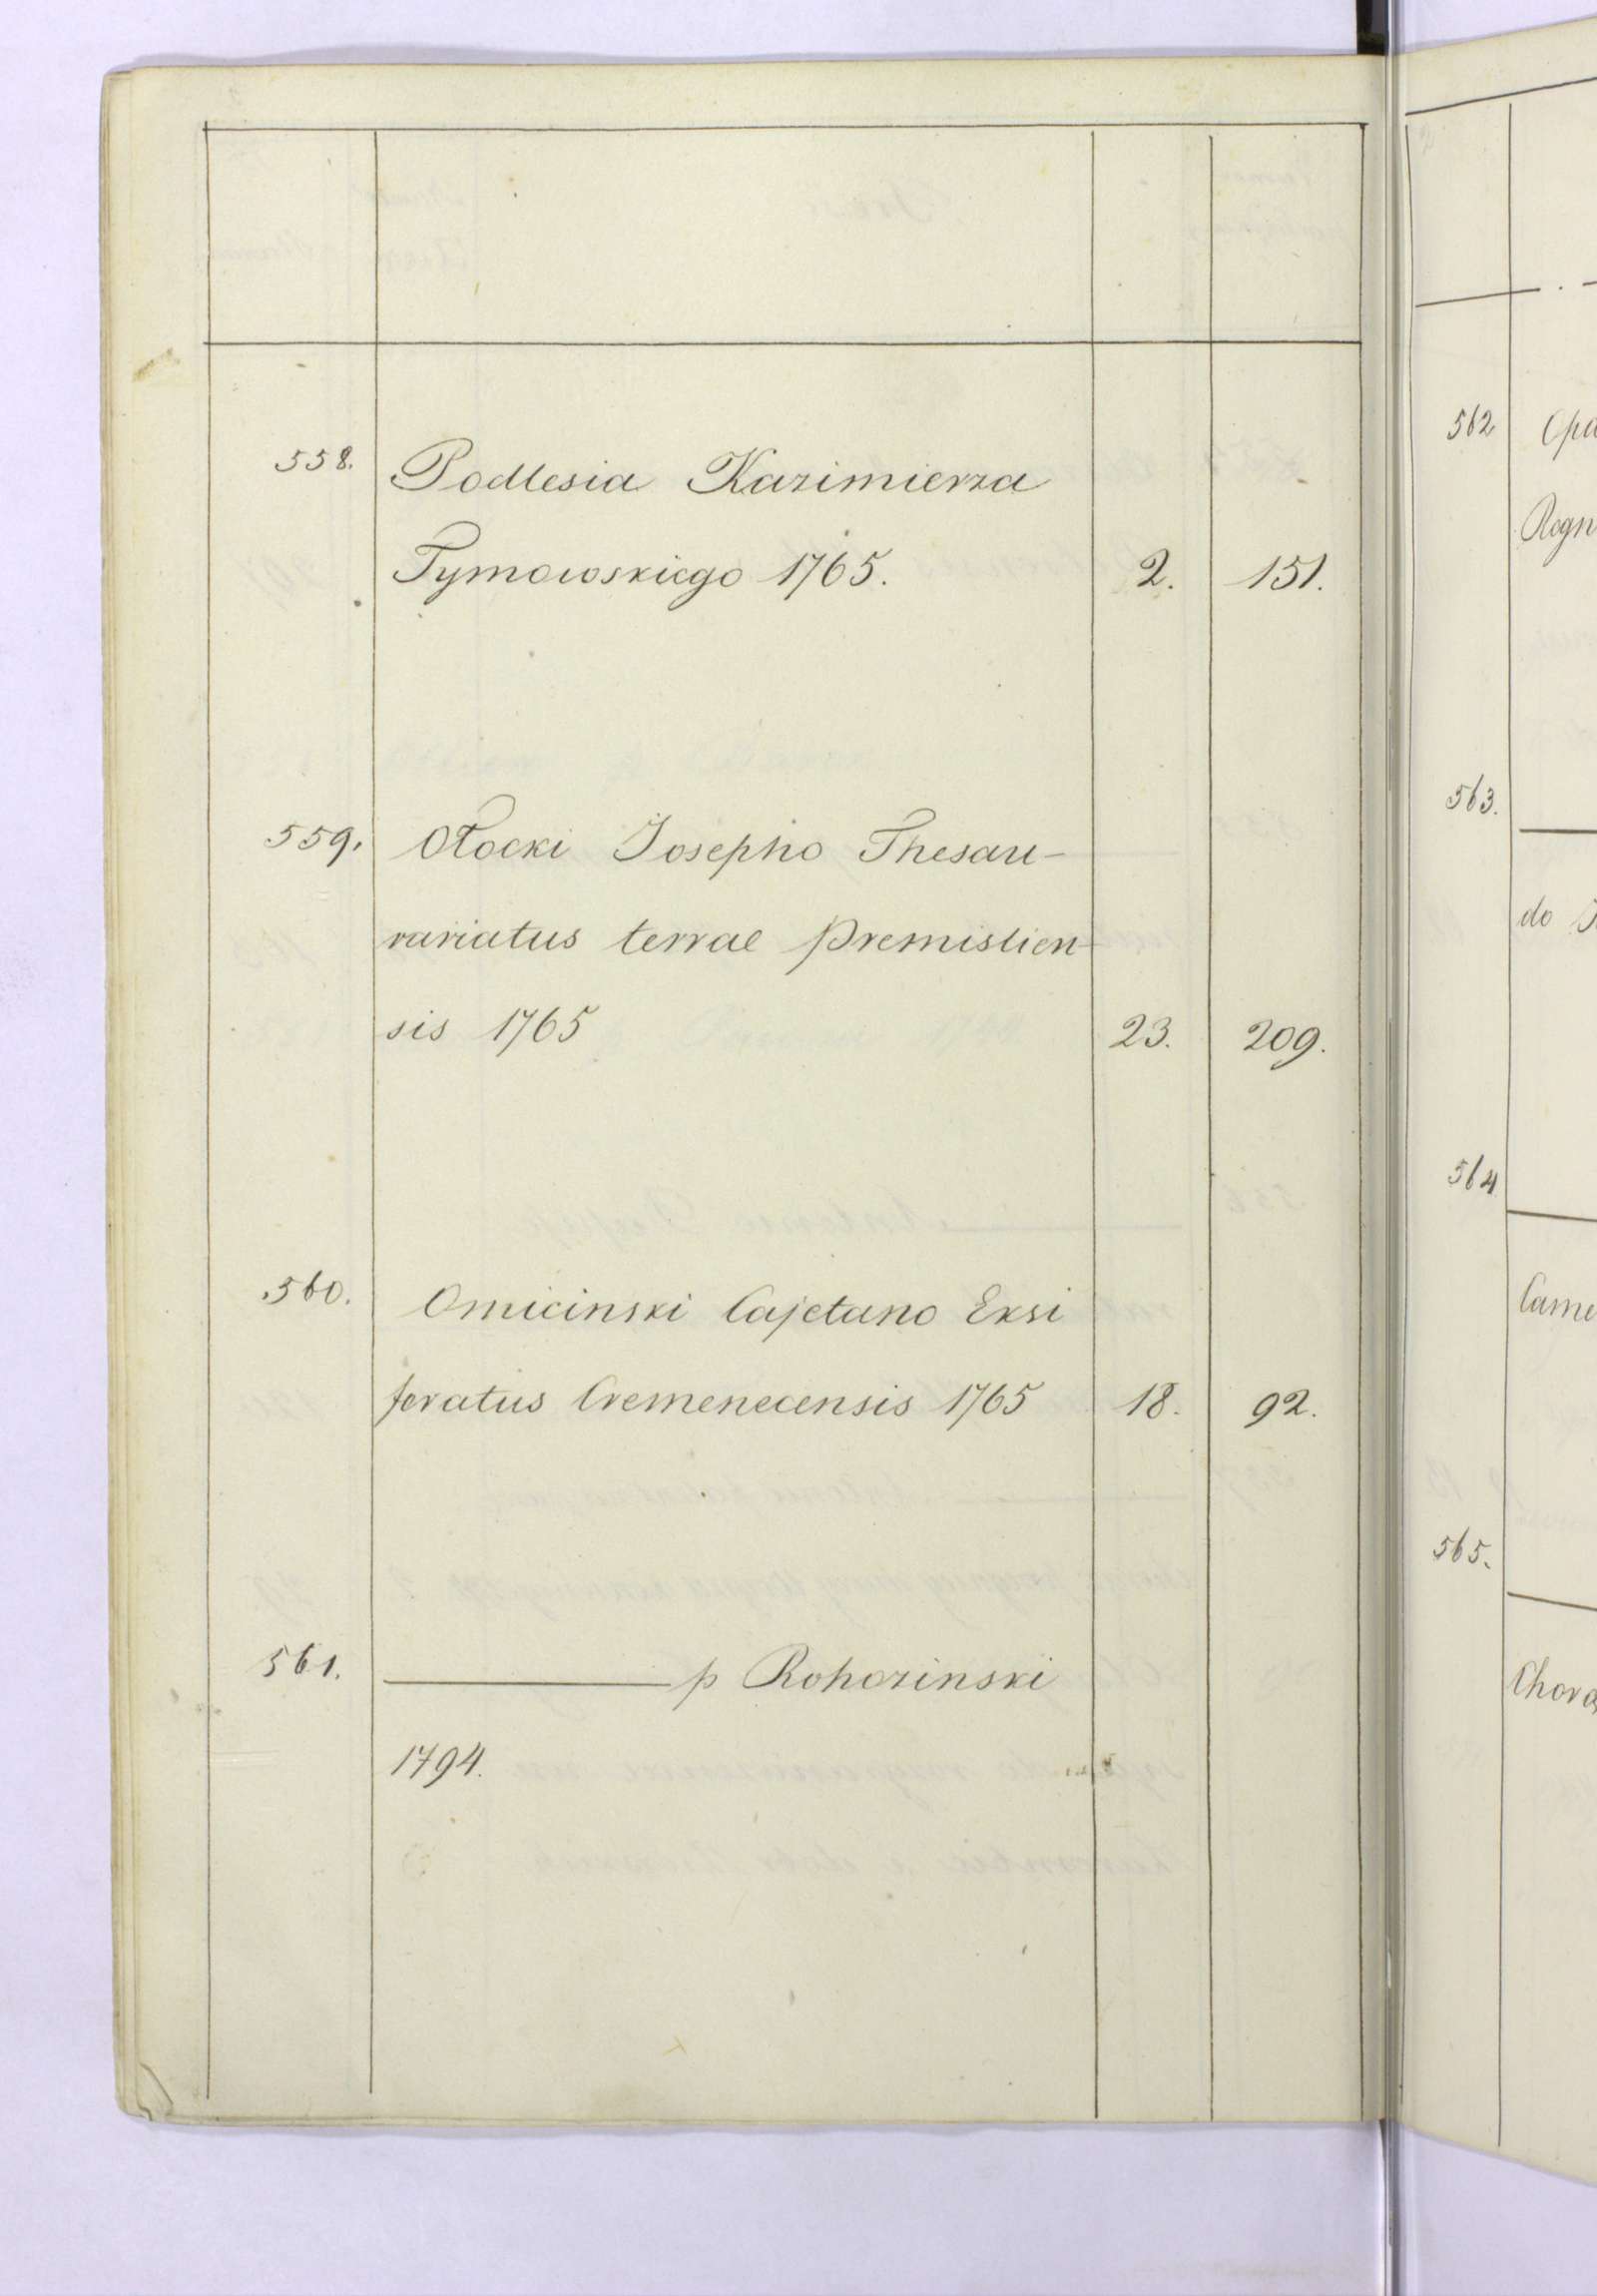 558. Podlesia Kazimierza
Tymowskiego 1765. 2. 151.
559. Otocki Josepho Thesau-
rariatus terrae Premislien-
sis 1765 23. 209.
560. Omicinski Cajetano Eksi
feratus Cremenecensis 1765 18. 92.
561. ——— p Rohozinski
1794.
562
Regn
563.
do
564
Came
565.